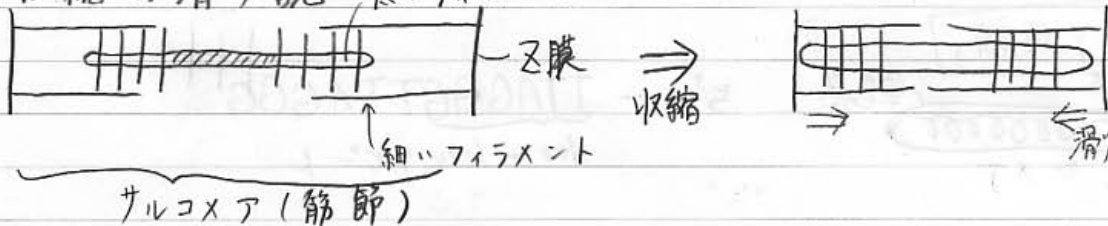 Z膜
収縮
細いフィラメント
サルコメア(筋節)